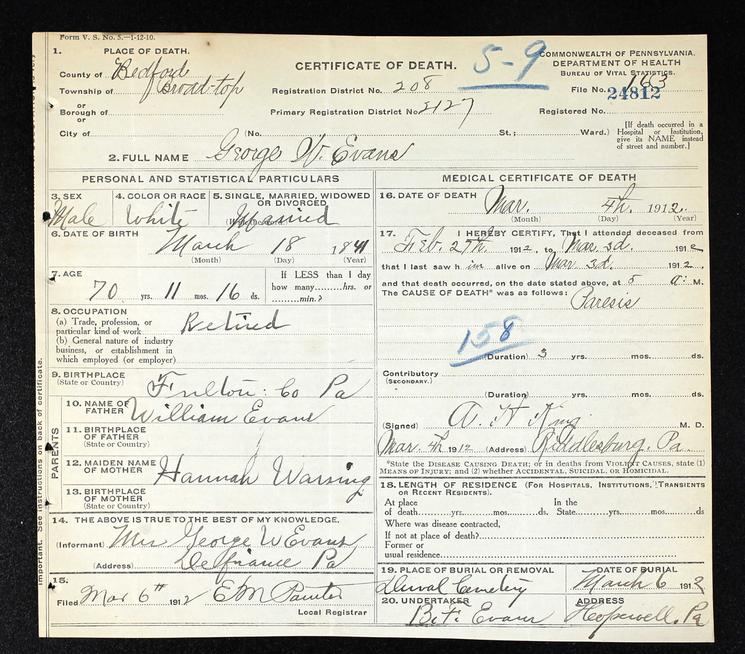 Form V. S. No. 5.—1-12-10.
1. PLACE OF DEATH.
County of Bedford
Township of Broadtop
or
Borough of
or
City of
CERTIFICATE OF DEATH.
5-9
Registration District No. 208
Primary Registration District No. 2127
(No. St.; Ward.)
COMMONWEALTH OF PENNSYLVANIA.
DEPARTMENT OF HEALTH
BUREAU OF VITAL STATISTICS.
163
File No. 24812
Registered No.
[If death occurred in a Hospital or Institution, give its NAME instead of street and number.]
2. FULL NAME George W. Evans
PERSONAL AND STATISTICAL PARTICULARS
3. SEX
Male
4. COLOR OR RACE
White
5. SINGLE, MARRIED, WIDOWED OR DIVORCED
Married
6. DATE OF BIRTH
March 18 1841
(Month) (Day) (Year)
7. AGE
70 yrs. 11 mos. 16 ds.
If LESS than 1 day how many hrs. or min.?
8. OCCUPATION
(a) Trade, profession, or particular kind of work
Retired
(b) General nature of industry business, or establishment in which employed (or employer)
9. BIRTHPLACE
(State or Country)
Fulton Co Pa
PARENTS
10. NAME OF FATHER
William Evans
11. BIRTHPLACE OF FATHER
(State or Country)
12. MAIDEN NAME OF MOTHER
Hannah Warsing
13. BIRTHPLACE OF MOTHER
(State or Country)
14. THE ABOVE IS TRUE TO THE BEST OF MY KNOWLEDGE.
(Informant) Mrs George W Evans
(Address) Defiance Pa
15.
Filed Mar 6th 1912 E M
Local Registrar
MEDICAL CERTIFICATE OF DEATH
16. DATE OF DEATH
Mar. 4th. 1912.
(Month) (Day) (Year)
17. I HEREBY CERTIFY, That I attended deceased from
Feb. 27th. 1912, to Mar 3d. 1912
that I last saw h im alive on Mar 3d. 1912.
and that death occurred, on the date stated above, at 5 a. M.
The CAUSE OF DEATH* was as follows:
Paresis
158
(Duration) 3 yrs. mos. ds.
Contributory
(SECONDARY.)
(Duration) yrs. mos. ds.
(Signed) M. D.
Mar 4th 1912 (Address) Riddlesburg, Pa.
*State the DISEASE CAUSING DEATH; or in deaths from VIOLENT CAUSES, state (1) MEANS OF INJURY; and (2) whether ACCIDENTAL, SUICIDAL OR HOMICIDAL.
18. LENGTH OF RESIDENCE (FOR HOSPITALS, INSTITUTIONS, TRANSIENTS OR RECENT RESIDENTS).
At place of death yrs. mos. ds. In the State yrs. mos. ds.
Where was disease contracted,
If not at place of death?
Former or usual residence
19. PLACE OF BURIAL OR REMOVAL
Duval Cemetery
DATE OF BURIAL
March 6 1912
20. UNDERTAKER
B. F. Evans
ADDRESS
Hopewell, Pa
important. See instructions on back of certificate.